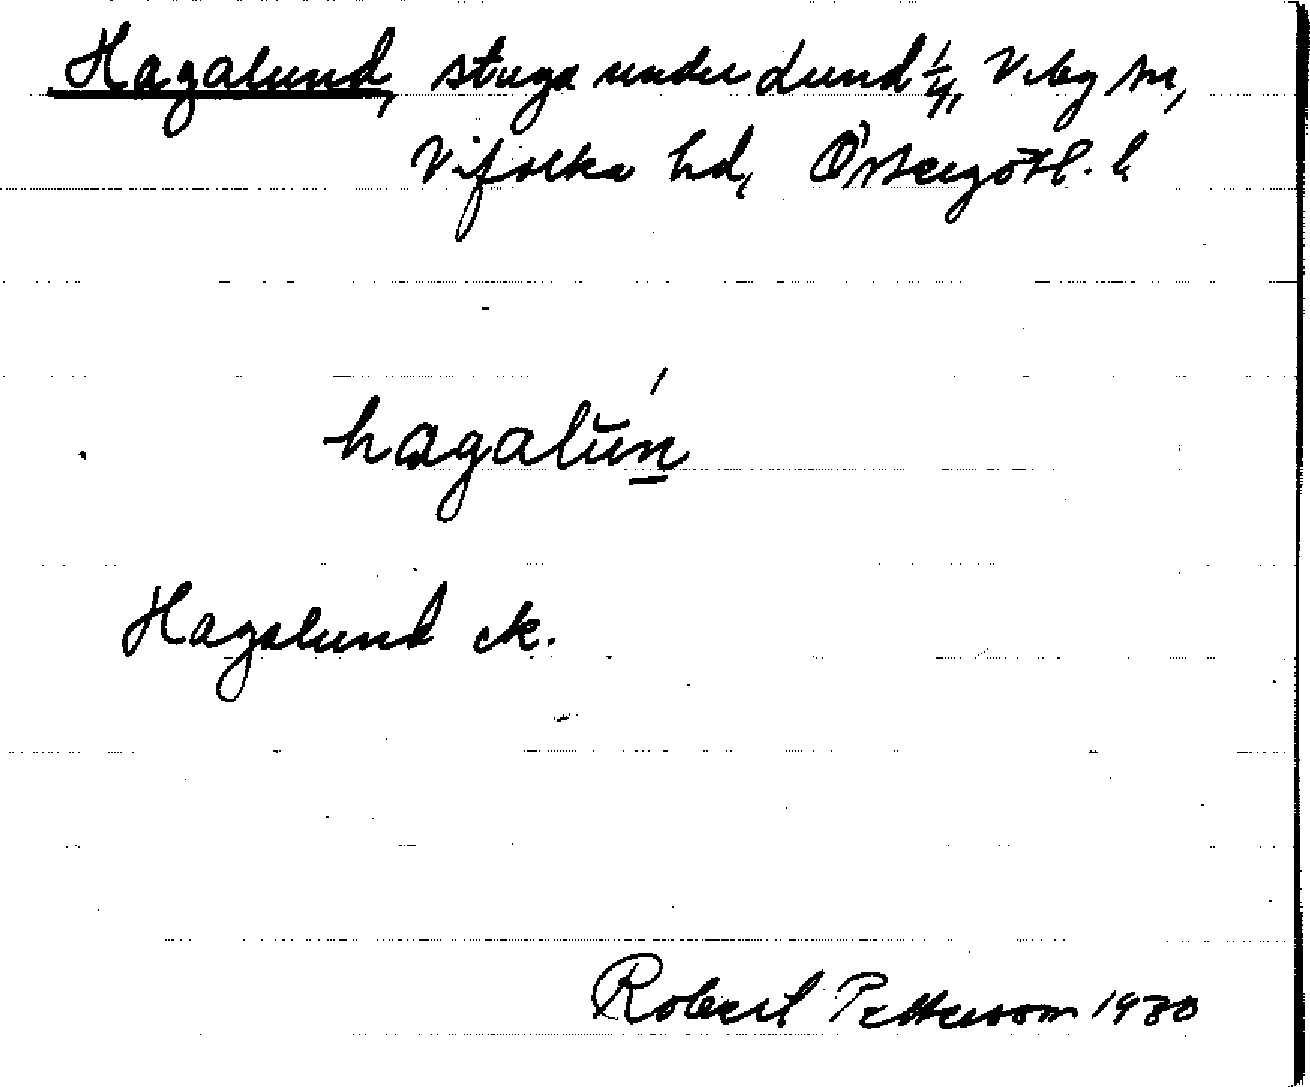 Hagalund, stuga under Lund 1/4, Viby sn,
Vifolka hd, Östergötl. l
hagalun
Hagalund ek.
Robert Pettersson 1930